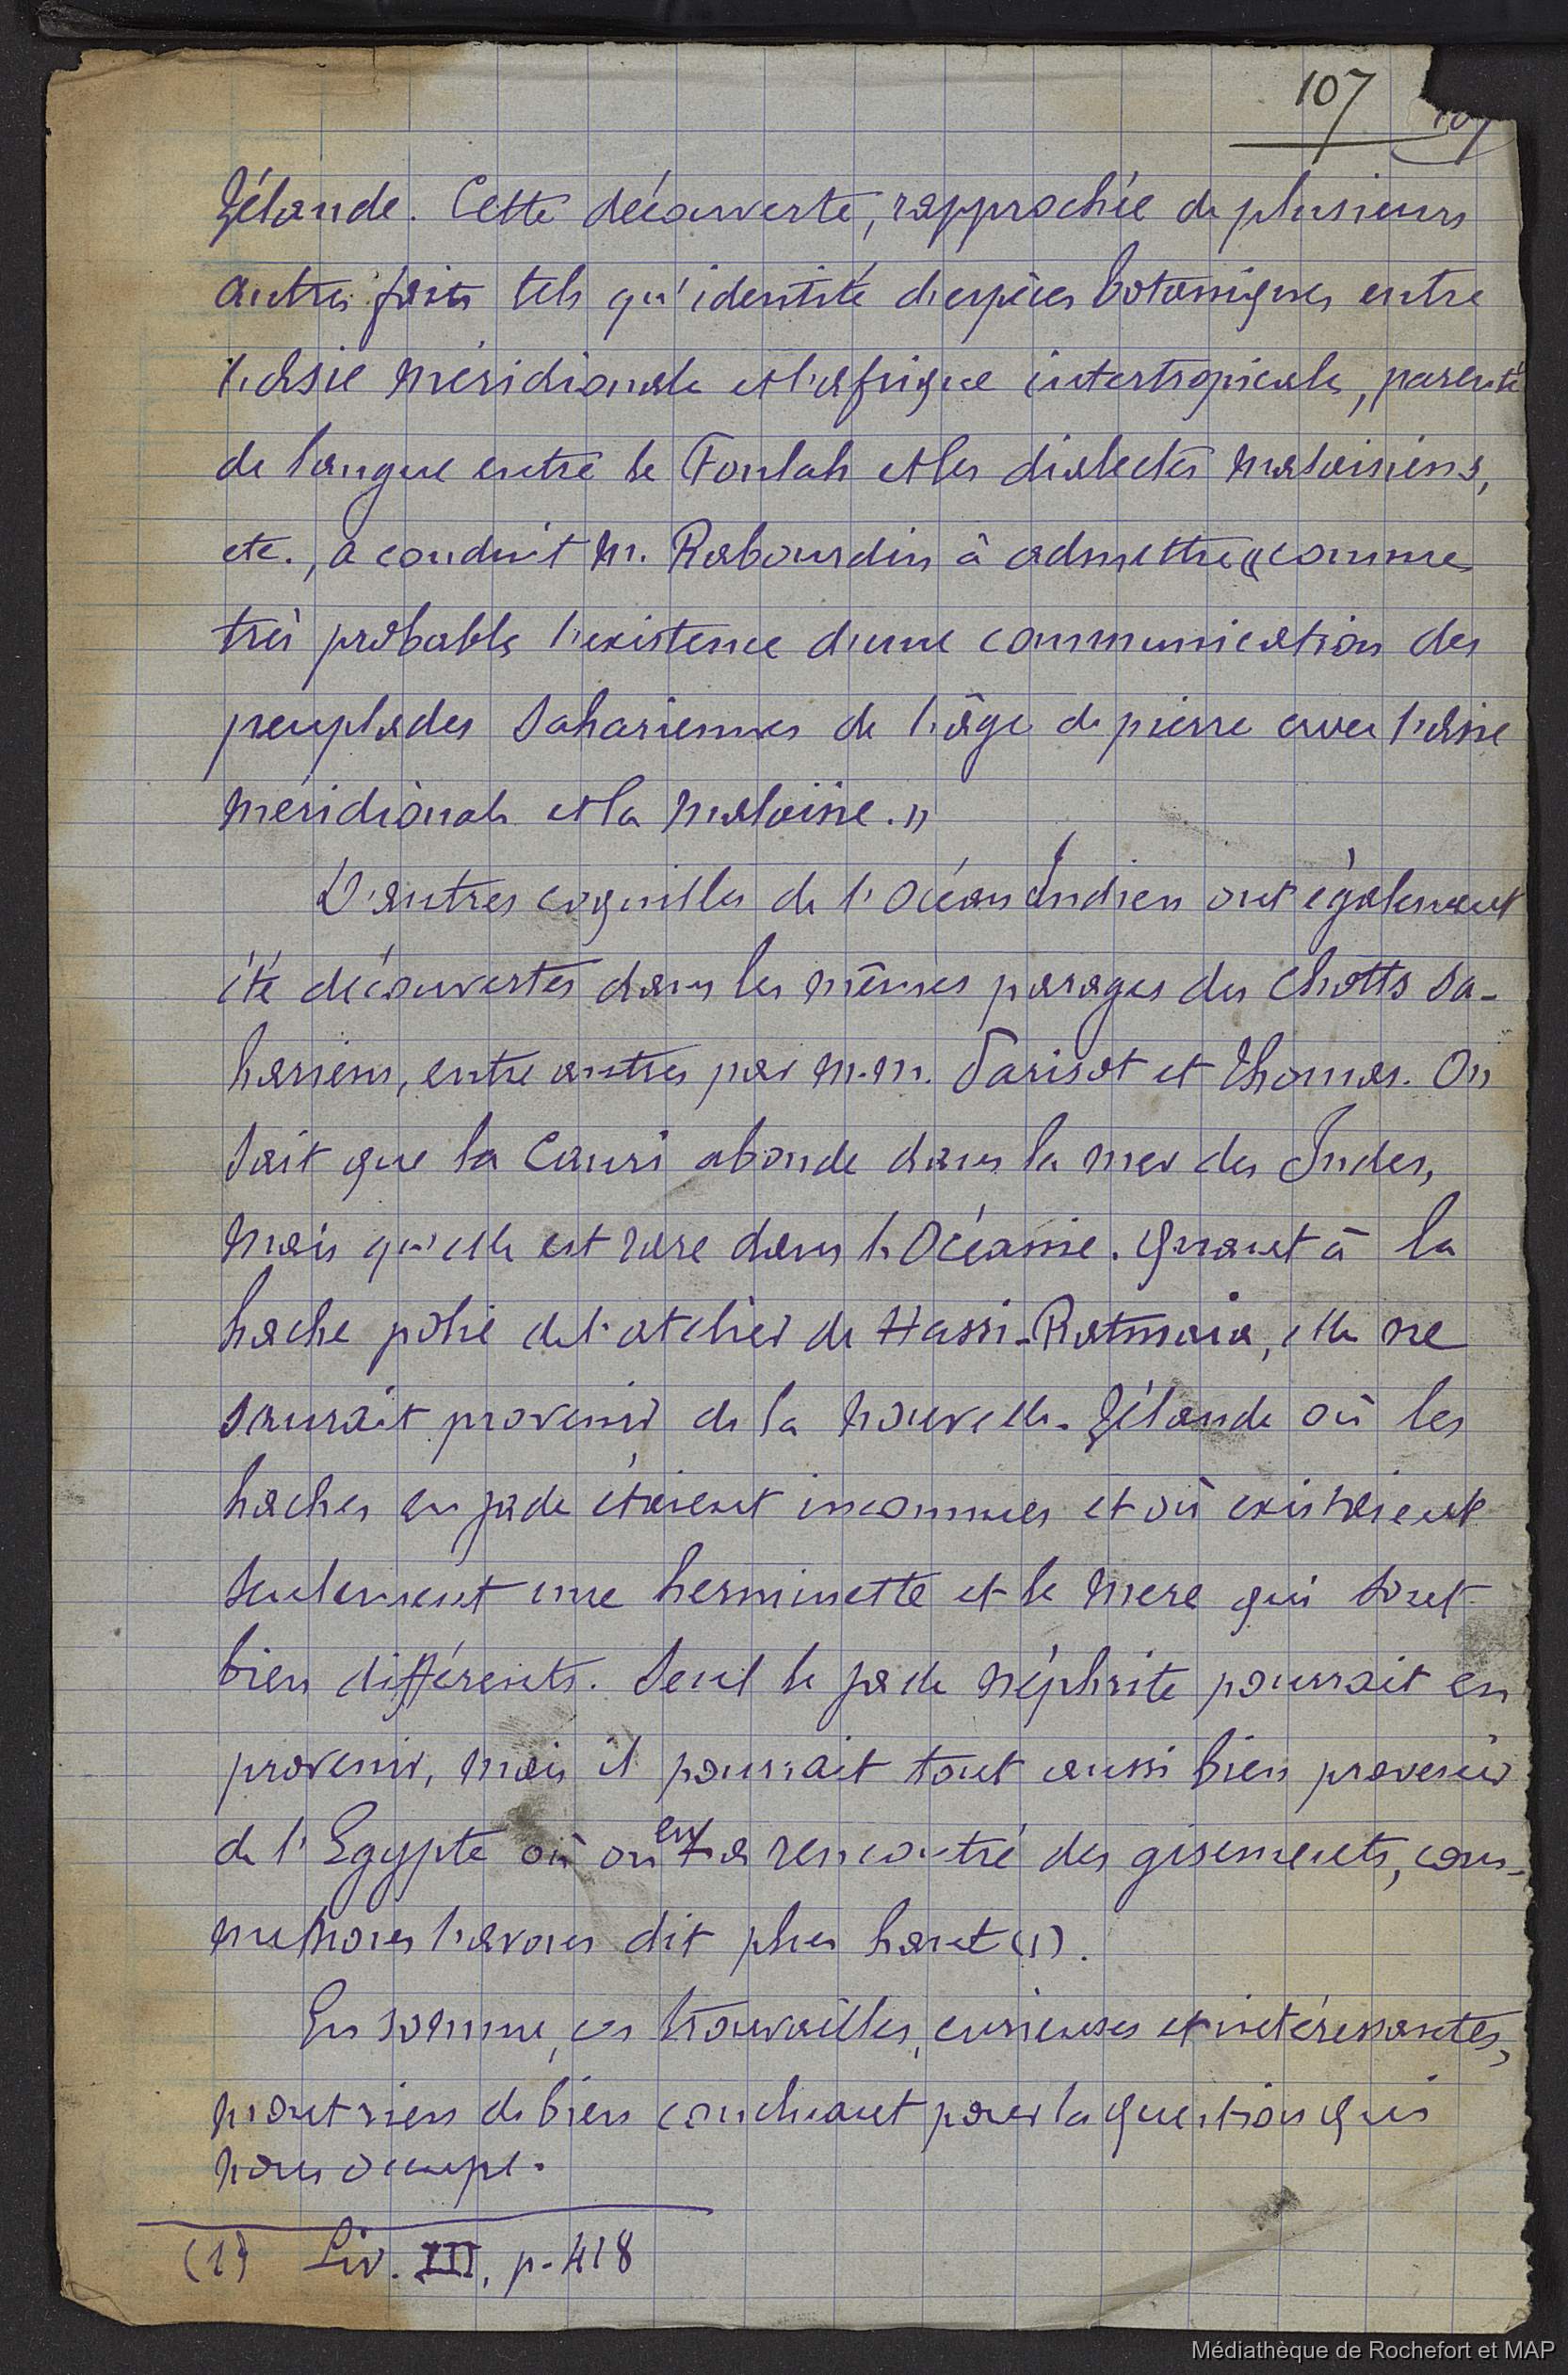 107
107
Zélande. Cette découverte, rapprochée de plusieurs
autres faits tels qu'identité d'espèces botaniques entre
l'Asie méridionale et l'Afrique intertropicale, parenté
de langue entre le Foulah et les dialectes malaisiens,
etc., a conduit M. Rabourdin à admettre « comme
très probable l'existence d'une communication des
peuplades sahariennes de l'âge de pierre avec l'Asie
méridionale et la Malaisie. »
D'autres coquilles de l'Océan Indien ont également
été découvertes dans les mêmes parages des Chotts sa-
hariens, entre autres par M.M. Parisot et Thomas. On
sait que la Cauri abonde dans la mer des Indes,
mais qu'elle est rare dans l'Océanie. Quant à la
hache polie de l'atelier de Hassi-Ratmaia, elle ne
saurait provenir de la Nouvelle-Zélande où les
haches en jade étaient inconnues et où existaient
seulement une herminette et le mere qui sont
bien différents. Seul le jade néphrite pourrait en
provenir, mais il pourrait tout aussi bien provenir
de l'Egypte où on en a rencontré des gisements, com-
me nous l'avons dit plus haut (1).
En somme, ces trouvailles, curieuses et intéressantes,
n'ont rien de bien concluant pour la question qui
nous occupe.
(1) Liv. III, p. 418
Médiathèque de Rochefort et MAP